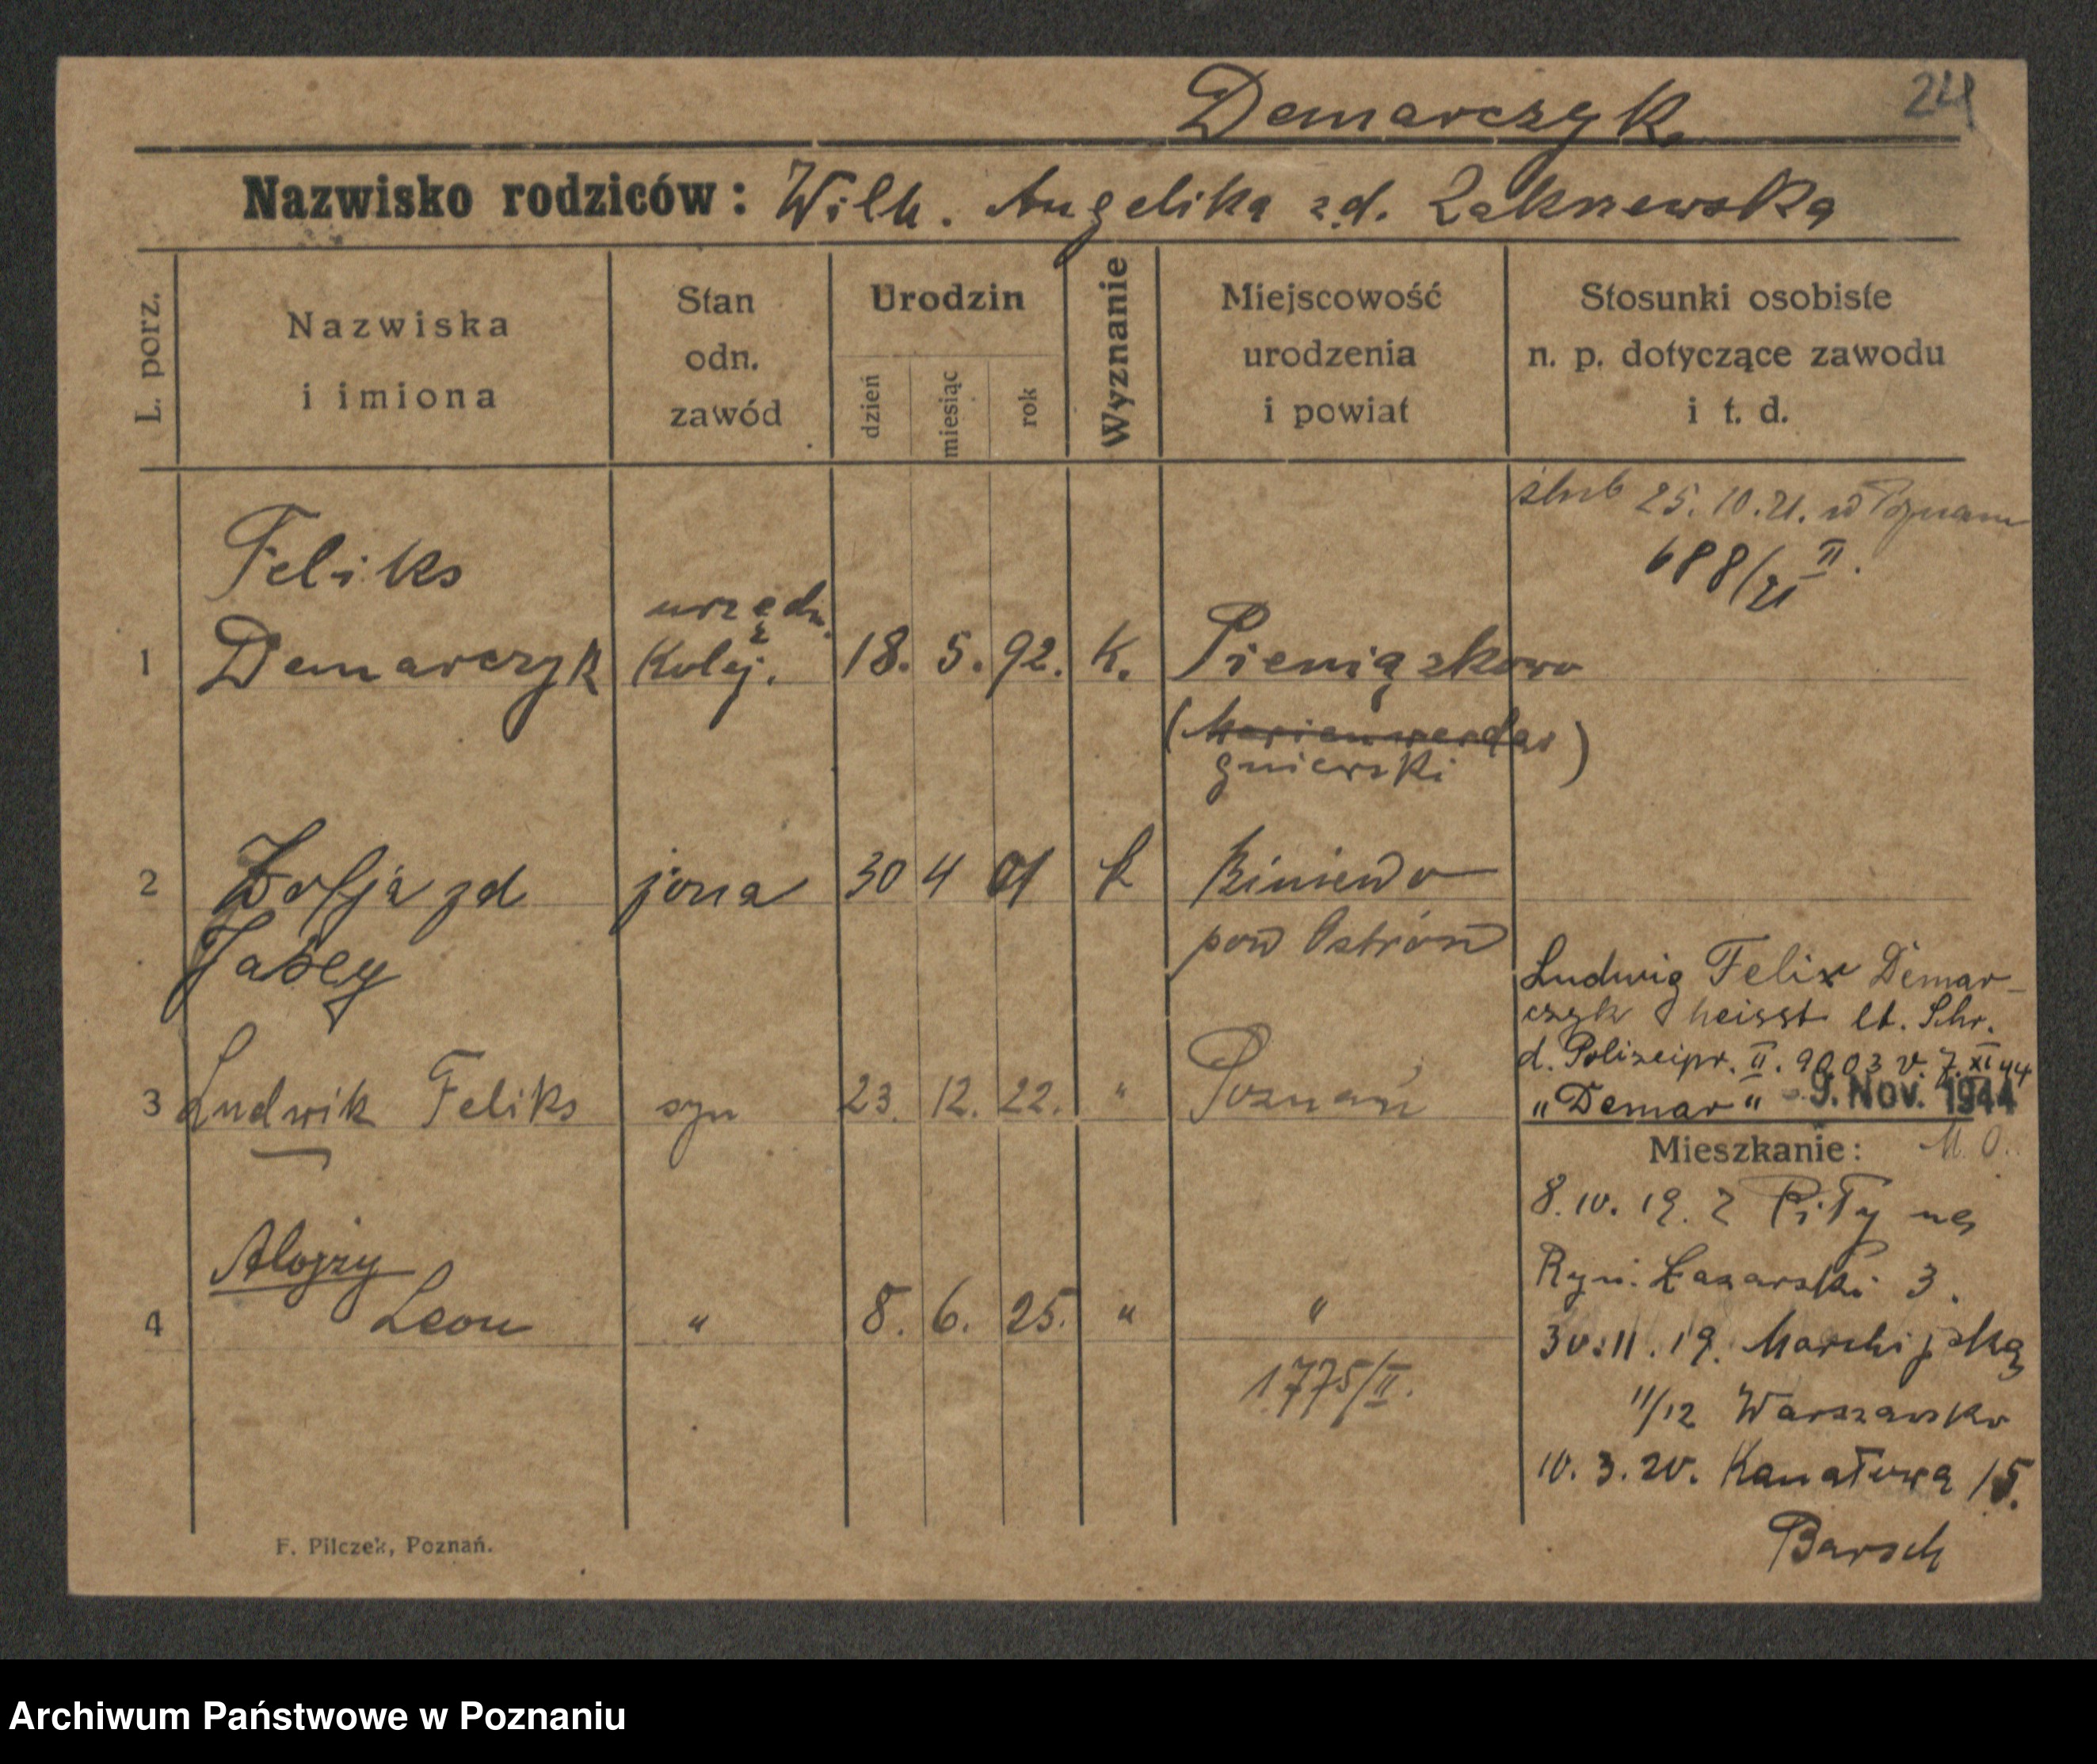 24
Demarczyk
Nazwisko rodziców: Wilh. Angelika zd.
L. porz.
Nazwiska
i imiona
Stan
odn.
zawód
Urodzin
dzień
miesiąc
rok
Wyznanie
Miejscowość
urodzenia
i powiat
Stosunki osobiste
n. p. dotyczące zawodu
i t. d.
ślub 25. 10. 21. w Poznaniu
688/21 II.
1
Feliks
Demarczyk
urzędn.
Kolej.
18. 5. 92. K. Pieniążkowo
(Marienwerder)
gniewski
2 Zofja zd jona 30 4 01 k Biniewo
pow Ostrów
Ludwig Felix Demar-
czyk heisst lt. Schr.
d. Polizeipr. II. 9003 v. 7. XI 44
"Demar" - 9. Nov. 1944
3 Ludwik Feliks syn 23. 12. 22. " Poznań
Mieszkanie: M. O.
8. 10. 19. z Piły na
Ryn. Łazarski 3.
4 Alojzy
Leon " 8. 6. 25. " "
1775/II.
30. 11. 19.
11/12 Warszawsko
10. 3. 20. Kanałowa 15.
Barsch
F. Pilczek, Poznań.
Archiwum Państwowe w Poznaniu